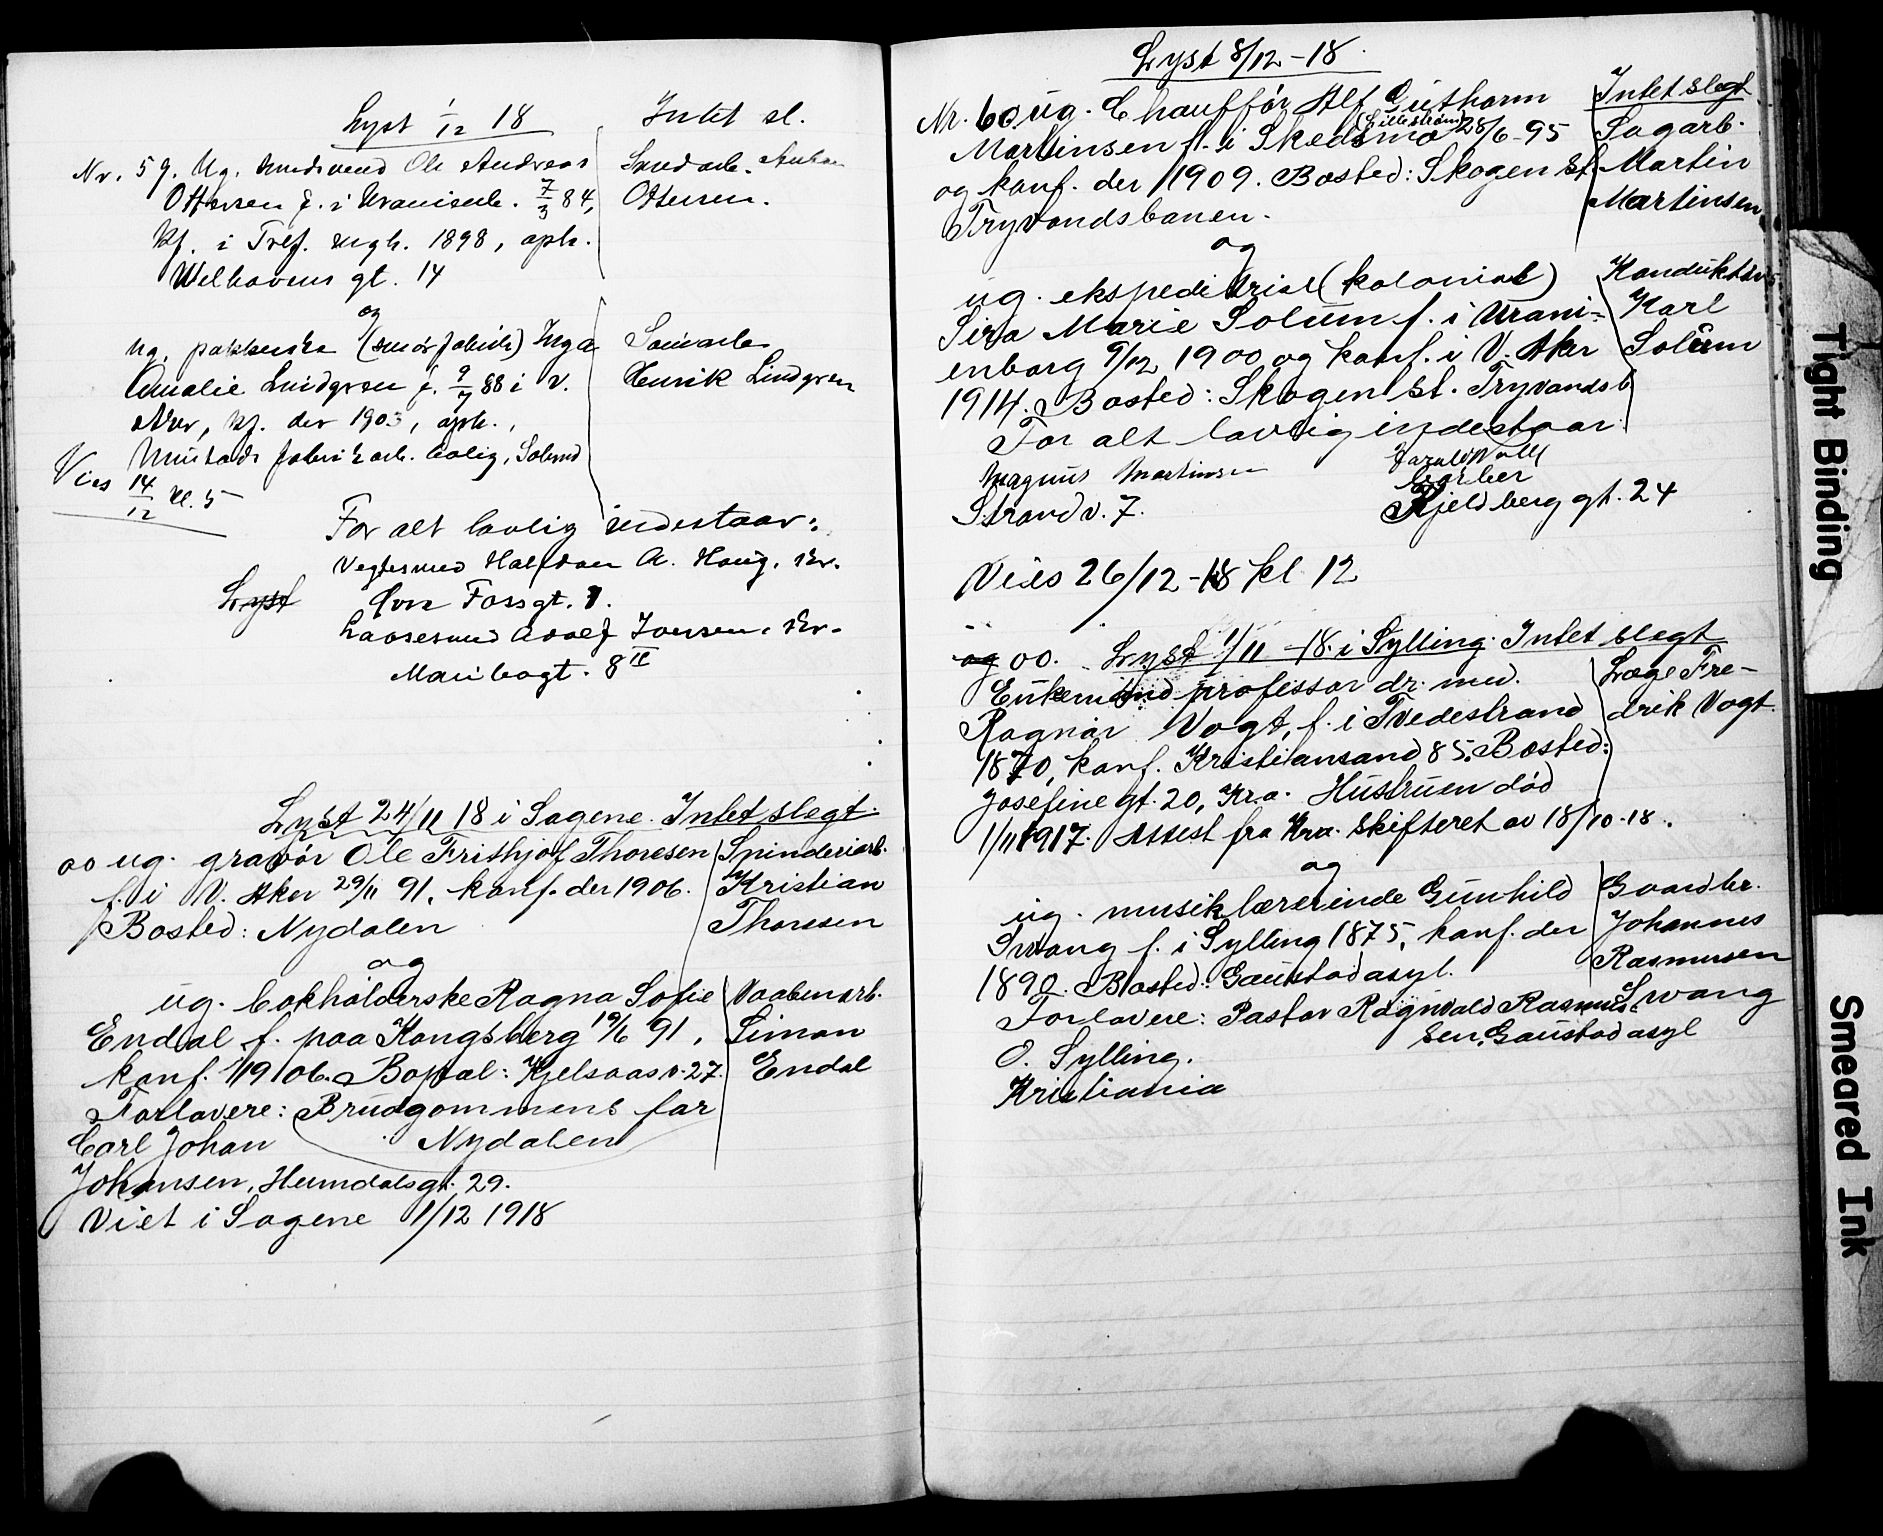 Lyst 1/12 18
Intet sl.
Nr. 59. Ug. Ole Andreas
Ottersen f. i Uranienb. 7/3 84,
kf. i Tref. mgh. 1898, oph.
Welhavens gt. 14
Ottersen.
og
ug. pakkerske (smørfabrik) Inga
Amalie Lindgren f. 9/7 88 i V.
Aker, kf. der 1903, oph.
Mustads fabrik arb. bolig,
Henrik Lindgren
Vies 14/12 kl. 5
For alt lovlig indestaar:
Halfdan A. Haug, Kr.
Lyst
Øvre Fossgt. 7.
Adolf Iversen, Kr.
Maribogt. 8 II
Lyst 24/11 18 i Sagene. Intet slegt.
oo ug. gravør Ole Frithjof Thoresen
f. i V. Aker 29/11 91, konf. der 1906.
Bosted: Nydalen
Spinderiarb.
Kristian
Thoresen
og
ug. bokholderske Ragna Sofie
Endal f. paa Kongsberg 19/6 91,
konf. 1906. Bopæl: Kjelsaasv. 27.
Vaabenarb.
Simon
Endal
Forlovere: Brudgommens far
Carl Johan Nydalen
Johansen, Heimdalsgt. 29.
Viet i Sagene 1/12 1918
Lyst 8/12-18.
Nr. 60 ug. Chauffør Alf Guthorm
(Lillestrøm)
Martinsen f. i Skedsmo 28/6-95
og konf. der 1909. Bosted: Skogen st.
Tryvandsbanen.
Intet slegt
Sagarb.
Martin
Martinsen
og
ug. ekspeditrise (kolonial)
Sira Marie Solum f. i Urani-
enborg 9/12 1900 og konf. i V. Aker
1914. Bosted: Skogen st. Tryvandsb
Konduktør
Karl
Solum
For alt lovlig indestaar:
Magnus Martinsen
Strandv. 7.
Kjeldsberg gt. 24
Vies 26/12-18 kl 12
og oo. Lyst 1/11-18 i Sylling. Intet slegt
Enkemand professor dr. med.
Ragnar Vogt, f. i Tvedestrand
1870, konf. Kristiansand 85. Bosted:
Josefinegt. 20, Kra. Hustruen død
1/11 1917. Attest fra Kra. skifteret av 18/10-18.
Læge Fre-
drik Vogt.
og
ug. musiklærerinde Gunhild
Swang f. i Sylling 1875, konf. der
1890. Bosted: Gaustad asyl.
Gaardbr.
Johannes
Rasmussen
Swang
Forlovere: Pastor Ragnvald Rasmus-
sen, Gaustad asyl
O. Sylling.
Kristiania
Tight Binding
Smeared Ink